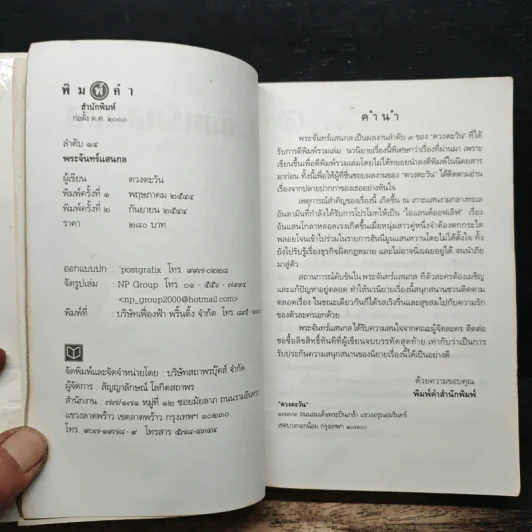 พิมพ์คำ
สำนักพิมพ์
ก่อตั้ง ค.ศ. ๒๐๐๐
ลำดับ ๑๔
พระจันทร์แสนกล
ผู้เขียน ดวงตะวัน
พิมพ์ครั้งที่ ๑ พฤษภาคม ๒๕๔๔
พิมพ์ครั้งที่ ๒ กันยายน ๒๕๔๔
ราคา ๒๘๐ บาท
ออกแบบปก : 'postgrafix โทร.
จัดรูปเล่ม : NP Group โทร. ๐๑ -
<np_group2000@hotmail.com>
พิมพ์ที่ : บริษัทเฟื่องฟ้า พริ้นติ้ง จำกัด โทร.
จัดพิมพ์และจัดจำหน่ายโดย : บริษัทสถาพรบุ๊คส์ จำกัด
ผู้จัดการ : สัญญาลักษณ์ โลกิตสถาพร
สำนักงาน : หมู่ที่ ๑๒ ซอยมัยลาภ ถนนรามอินทรา
แขวงลาดพร้าว เขตลาดพร้าว กรุงเทพฯ ๑๐๒๓๐
โทร. โทรสาร
คำนำ
พระจันทร์แสนกลเป็นผลงานลำดับ ๓ ของ "ดวงตะวัน" ที่ได้
รับการตีพิมพ์รวมเล่ม นวนิยายเรื่องนี้พิเศษกว่าเรื่องที่ผ่านมา เพราะ
เขียนขึ้นเพื่อตีพิมพ์รวมเล่มโดยไม่ได้ทยอยนำลงตีพิมพ์ในนิตยสาร
มาก่อน ทั้งนี้เพื่อให้ผู้ที่ชื่นชอบผลงานของ "ดวงตะวัน" ได้ติดตามอ่าน
เรื่องจากปลายปากกาของเธออย่างทันใจ
เหตุการณ์สำคัญของเรื่องนี้ เกิดขึ้น ณ เกาะแสนงามกลางทะเล
อันดามันที่กำลังได้รับการโปรโมทให้เป็น "ไอแลนด์ออฟเลิฟ" เรื่อง
อันแสนโกลาหลอลเวงเกิดขึ้นเมื่อหนุ่มสาวคู่หนึ่งจำต้องตกกระได
พลอยโจนเข้าไปร่วมในรายการฮันนีมูนแสนหวานโดยไม่ได้ตั้งใจ ทั้ง
ยังไปรับรู้เรื่องธุรกิจผิดกฎหมาย และไม่อาจนิ่งเฉยอยู่ได้ จนนำภัย
มาสู่ตัว
สถานการณ์คับขันใน พระจันทร์แสนกล ที่ตัวละครต้องเผชิญ
และแก้ปัญหาอยู่ตลอด ทำให้นวนิยายเรื่องนี้สนุกสนานชวนติดตาม
ตลอดเรื่อง ในขณะเดียวกันก็ได้รสเริงรื่นและสุขสมไปกับความรัก
ของตัวละครเอกด้วย
พระจันทร์แสนกล ได้รับความสนใจจากคณะผู้จัดละคร ติดต่อ
ขอซื้อลิขสิทธิ์ทันทีที่ผู้เขียนจบบรรทัดสุดท้าย เท่ากับว่าเป็นการ
รับประกันความสนุกสนานของนิยายเรื่องนี้ได้เป็นอย่างดี
ด้วยความขอบคุณ
พิมพ์คำสำนักพิมพ์
"ดวงตะวัน"
ถนนสมเด็จพระปิ่นเกล้า แขวงอรุณอมรินทร์
เขตบางกอกน้อย กรุงเทพฯ ๑๐๗๐๐